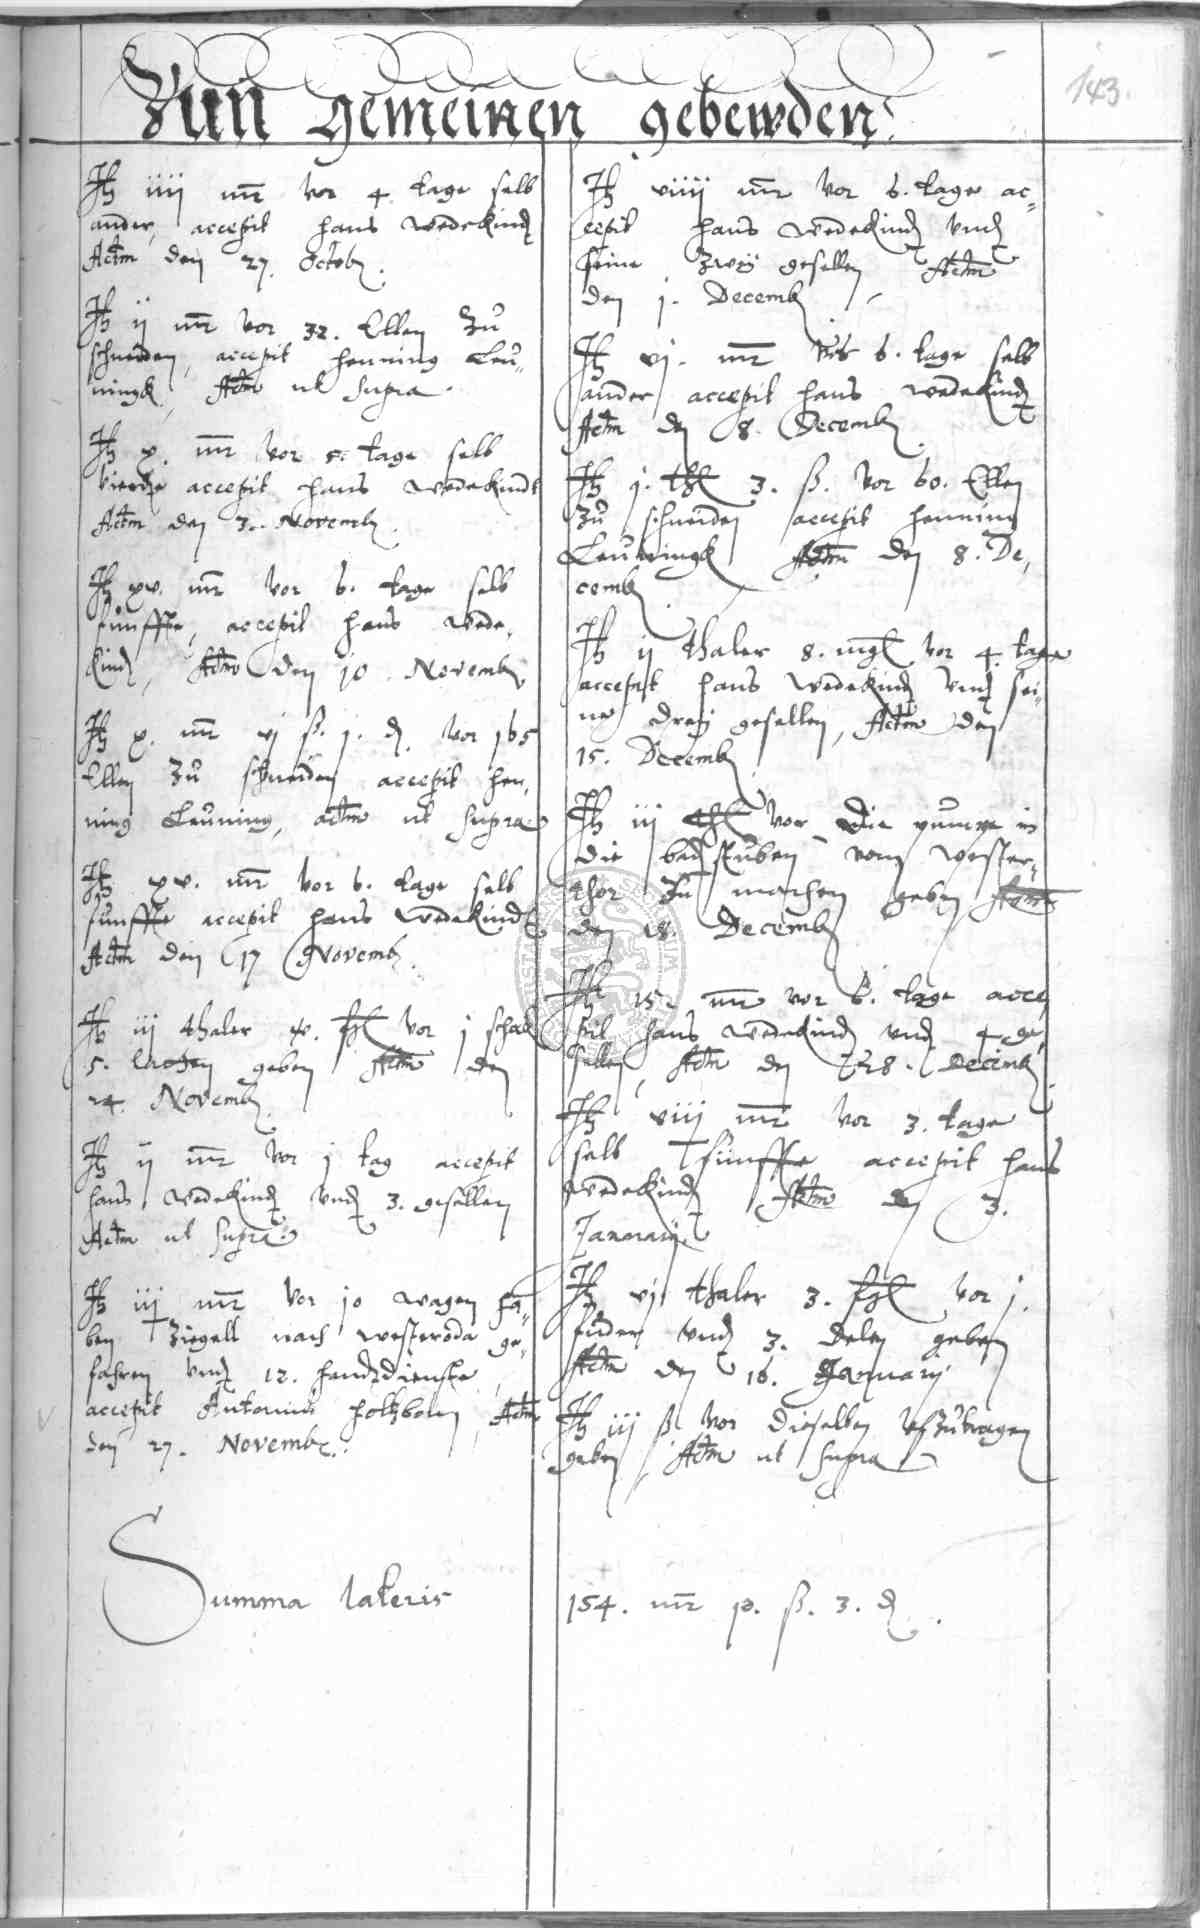 143.
Zun gemeinen gebewden:
It iiij mr vor 4. tage selb
ander, accepit Hans Wedekindt
Actm den 27. Octob.
It ij mr vor 32. Ellen Zu
schneiden, accepit Henning Leu-
ningk, Actm ut supra.
It x. mr vor 5. tage selb
vierde accepit Hans Wedekindt
Actm den 3. Novemb.
It xv. mr vor 6. tage selb
fünffte, accepit Hans Wede-
kindt, Actm den 10. Novemb.
It x. mr vj ß. j. d. vor 165
Ellen Zu schneiden accepit Hen-
ning Leuning, actm ut supra
It xv. mr vor 6. tage selb
fünffte accepit Hans Wedekindt
Actm den 17 Novemb.
It iij thaler vor j schock
5. geben Actm den
24. Novemb.
It ij mr vor j tag accepit
Hans Wedekindt undt 3. gesellen
Actm ut supra
It iij mr vor 10 wagen
ben Ziegell nach Westeroda ge-
fahren undt 12. handtdienste,
accepit Antonius Holtzborn, Actm
den 27. Novemb.
It viiij mr vor 6. tage ac-
cepit Hans Wedekindt undt
seine Zwey gesellen Actm
den j. Decemb.
It vj. mr vor 6. tage selb
ander accepit Hans Wedekindt
Actm den 8. Decemb.
It j. thl 3. ß. vor 60. Ellen
Zu schneiden accepit Henning
Leuningk Actm den 8. De-
cemb.
It ij thaler 8. mgl vor 4. tage
accepit Hans Wedekindt undt sei-
ne drey gesellen, Actm den
15. Decemb.
It iij thl vor die pumpe in
die badstuben vom Wester-
thor Zu machen geben Actm
den 18. Decemb.
It 15 mr vor 6. tage acce-
pit Hans Wedekindt undt 4 ge-
sellen, Actm den 28. Decemb.
It viij mr vor 3. tage
selb fünffte accepit Hans
Wedekindt Actm den 3.
January
It vj thaler 3. vor j.
fuder undt 3. Delen geben
Actm den 16. January
It iij ß vor dieselben uffZutragen
geben, Actm ut supra
Summa lateris 154. mr 10. ß. 3. d.